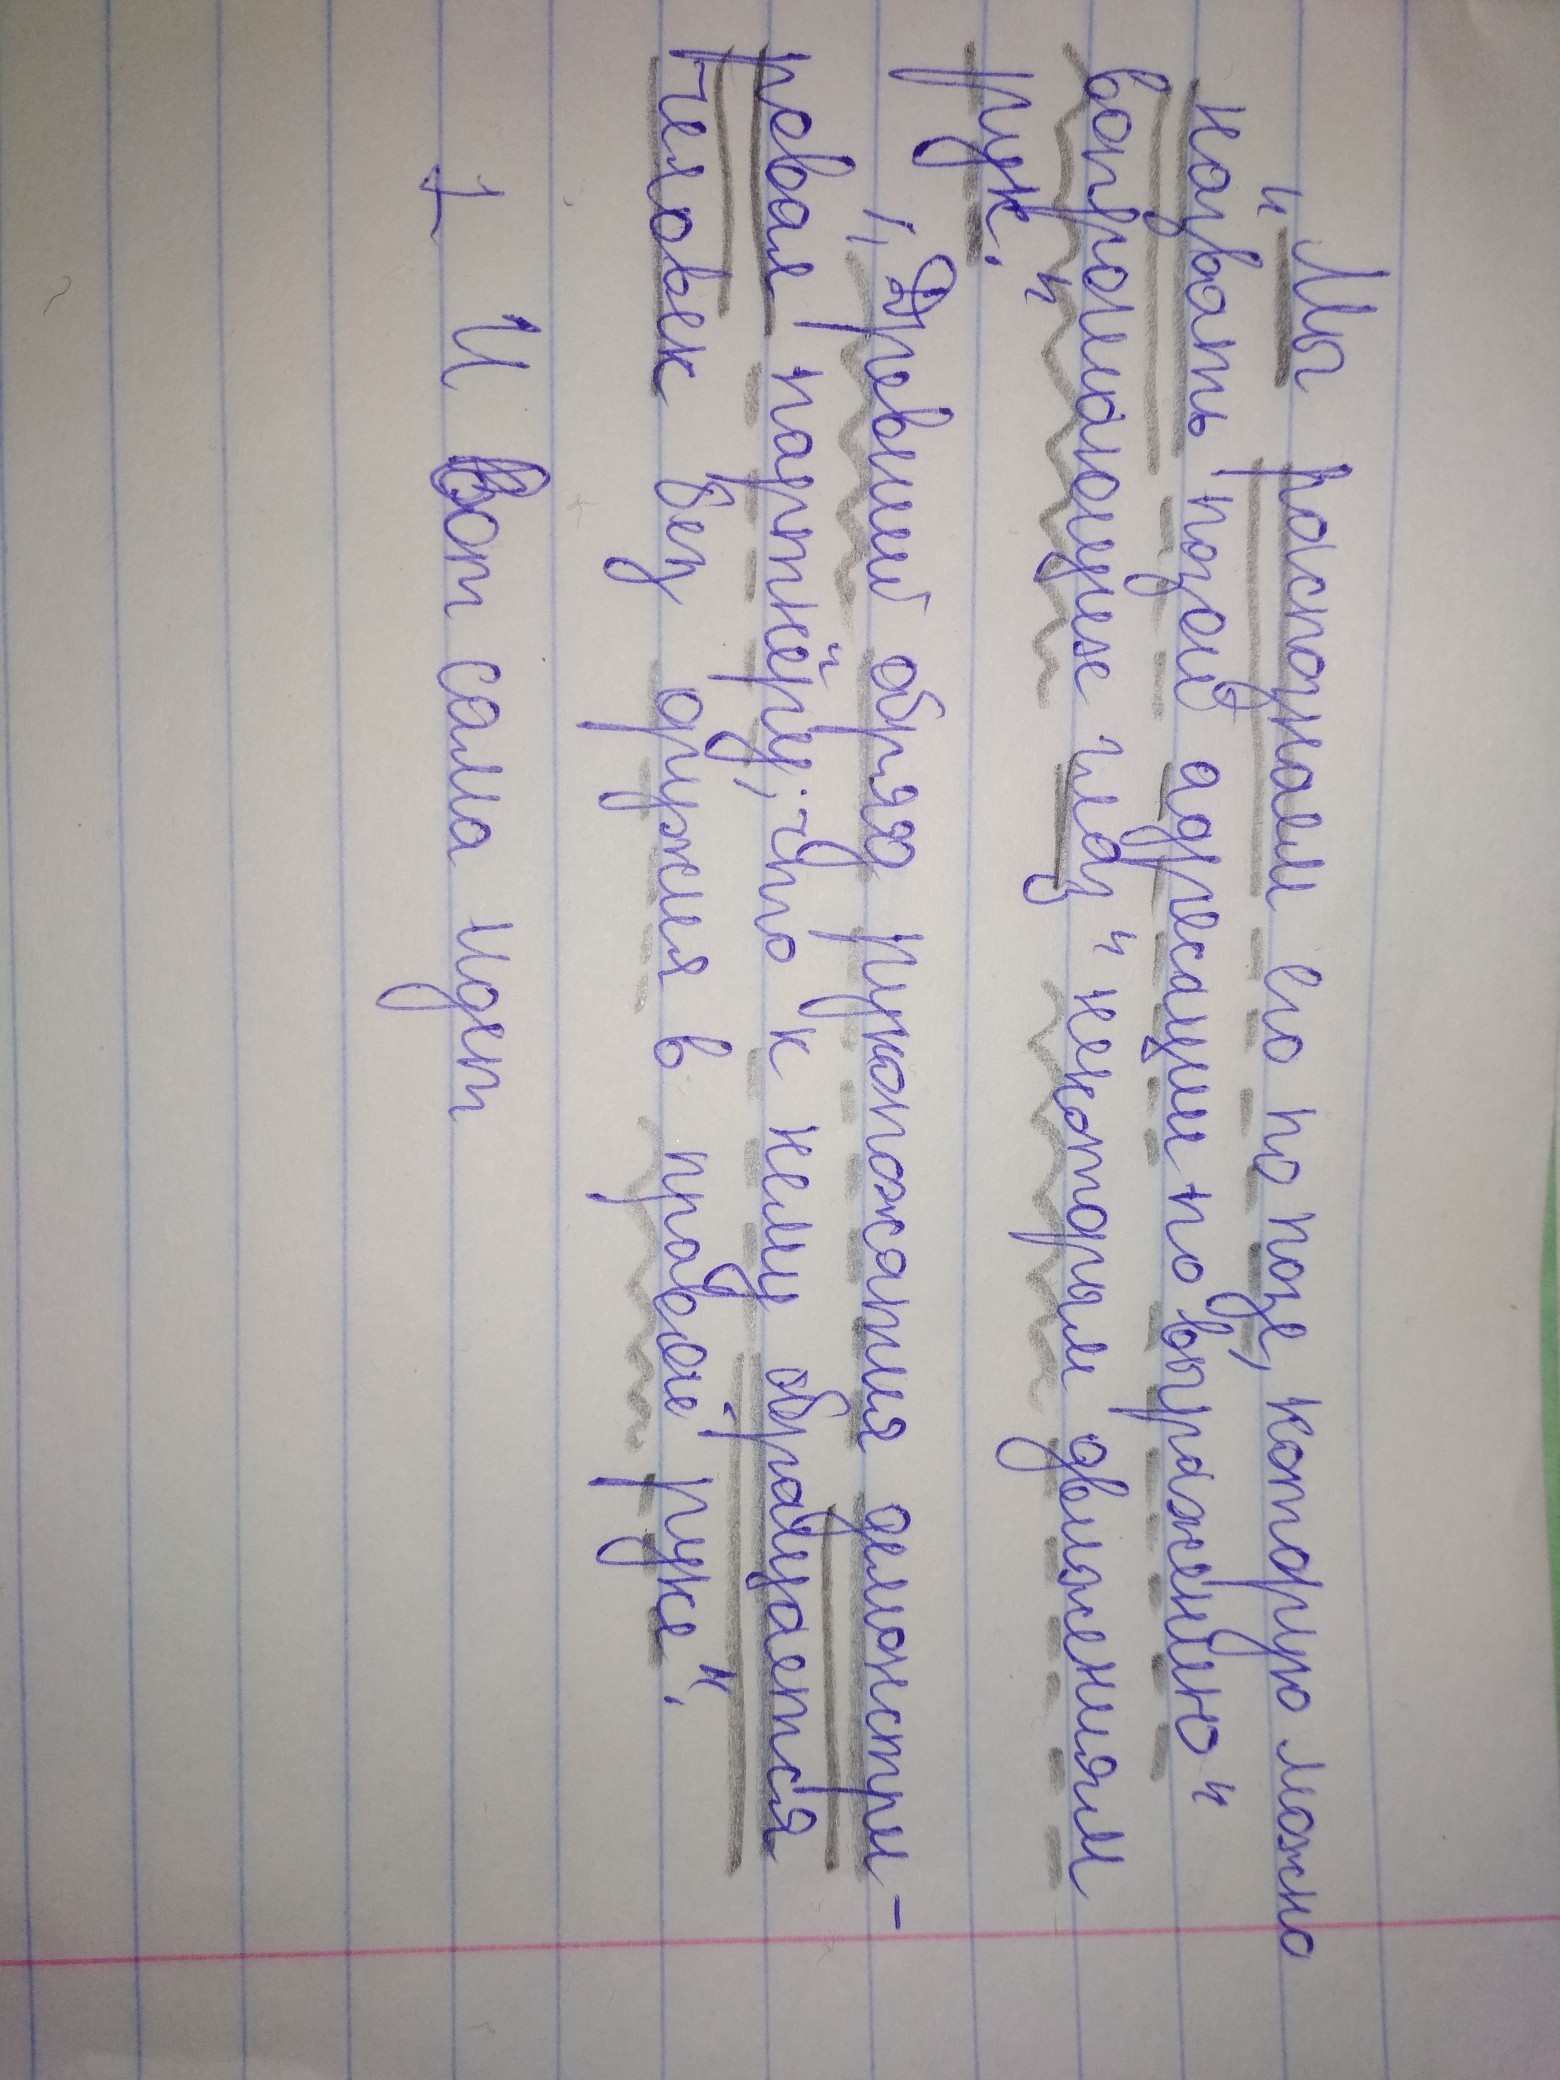 "Мы распознаем его по позе, которую можно
назвать позой адресации по выражению "
вопрошающих глаз" некоторым движениям
рук."
"Древний обряд рукопожатия демонстри-
ровал партнёру, что к нему обращается
человек без оружия в правой руке".
1 И Вот сама идет